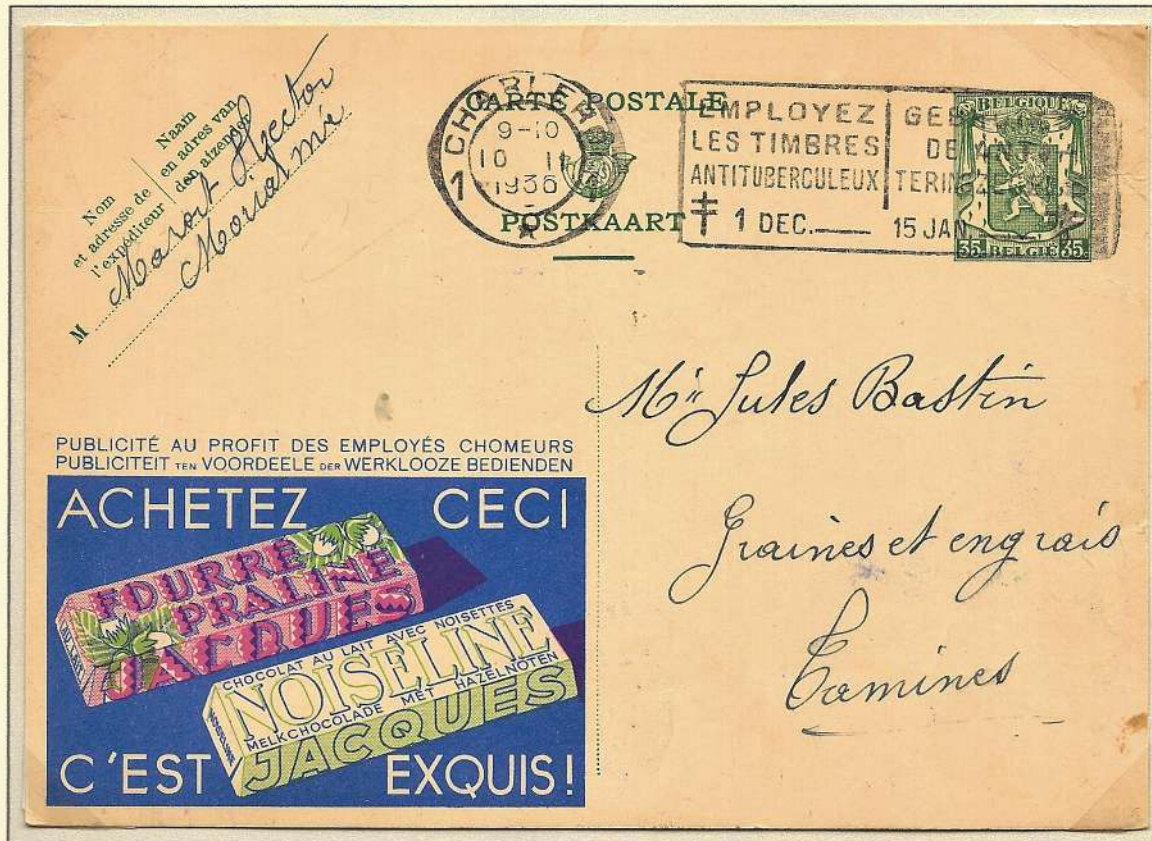 CARTE POSTALE
POSTKAART
Nom
et adresse de
l'expéditeur
Naam
en adres van
den afzender
M Marot Hector
CHARLEROI
1 1
9-10
1936
EMPLOYEZ
LES TIMBRES
ANTITUBERCULEUX
1 DEC. 15 JAN.
BELGIQUE
35c BELGIË 35c
Mr Jules Bastin
Graines et engrais
Tamines
PUBLICITÉ AU PROFIT DES EMPLOYÉS CHOMEURS
PUBLICITEIT TEN VOORDEELE DER WERKLOOZE BEDIENDEN
ACHETEZ CECI
FOURRÉ
PRALINÉ
JACQUES
CHOCOLAT AU LAIT AVEC NOISETTES
NOISELINE
MELKCHOCOLADE MET HAZELNOTEN
JACQUES
C'EST EXQUIS!